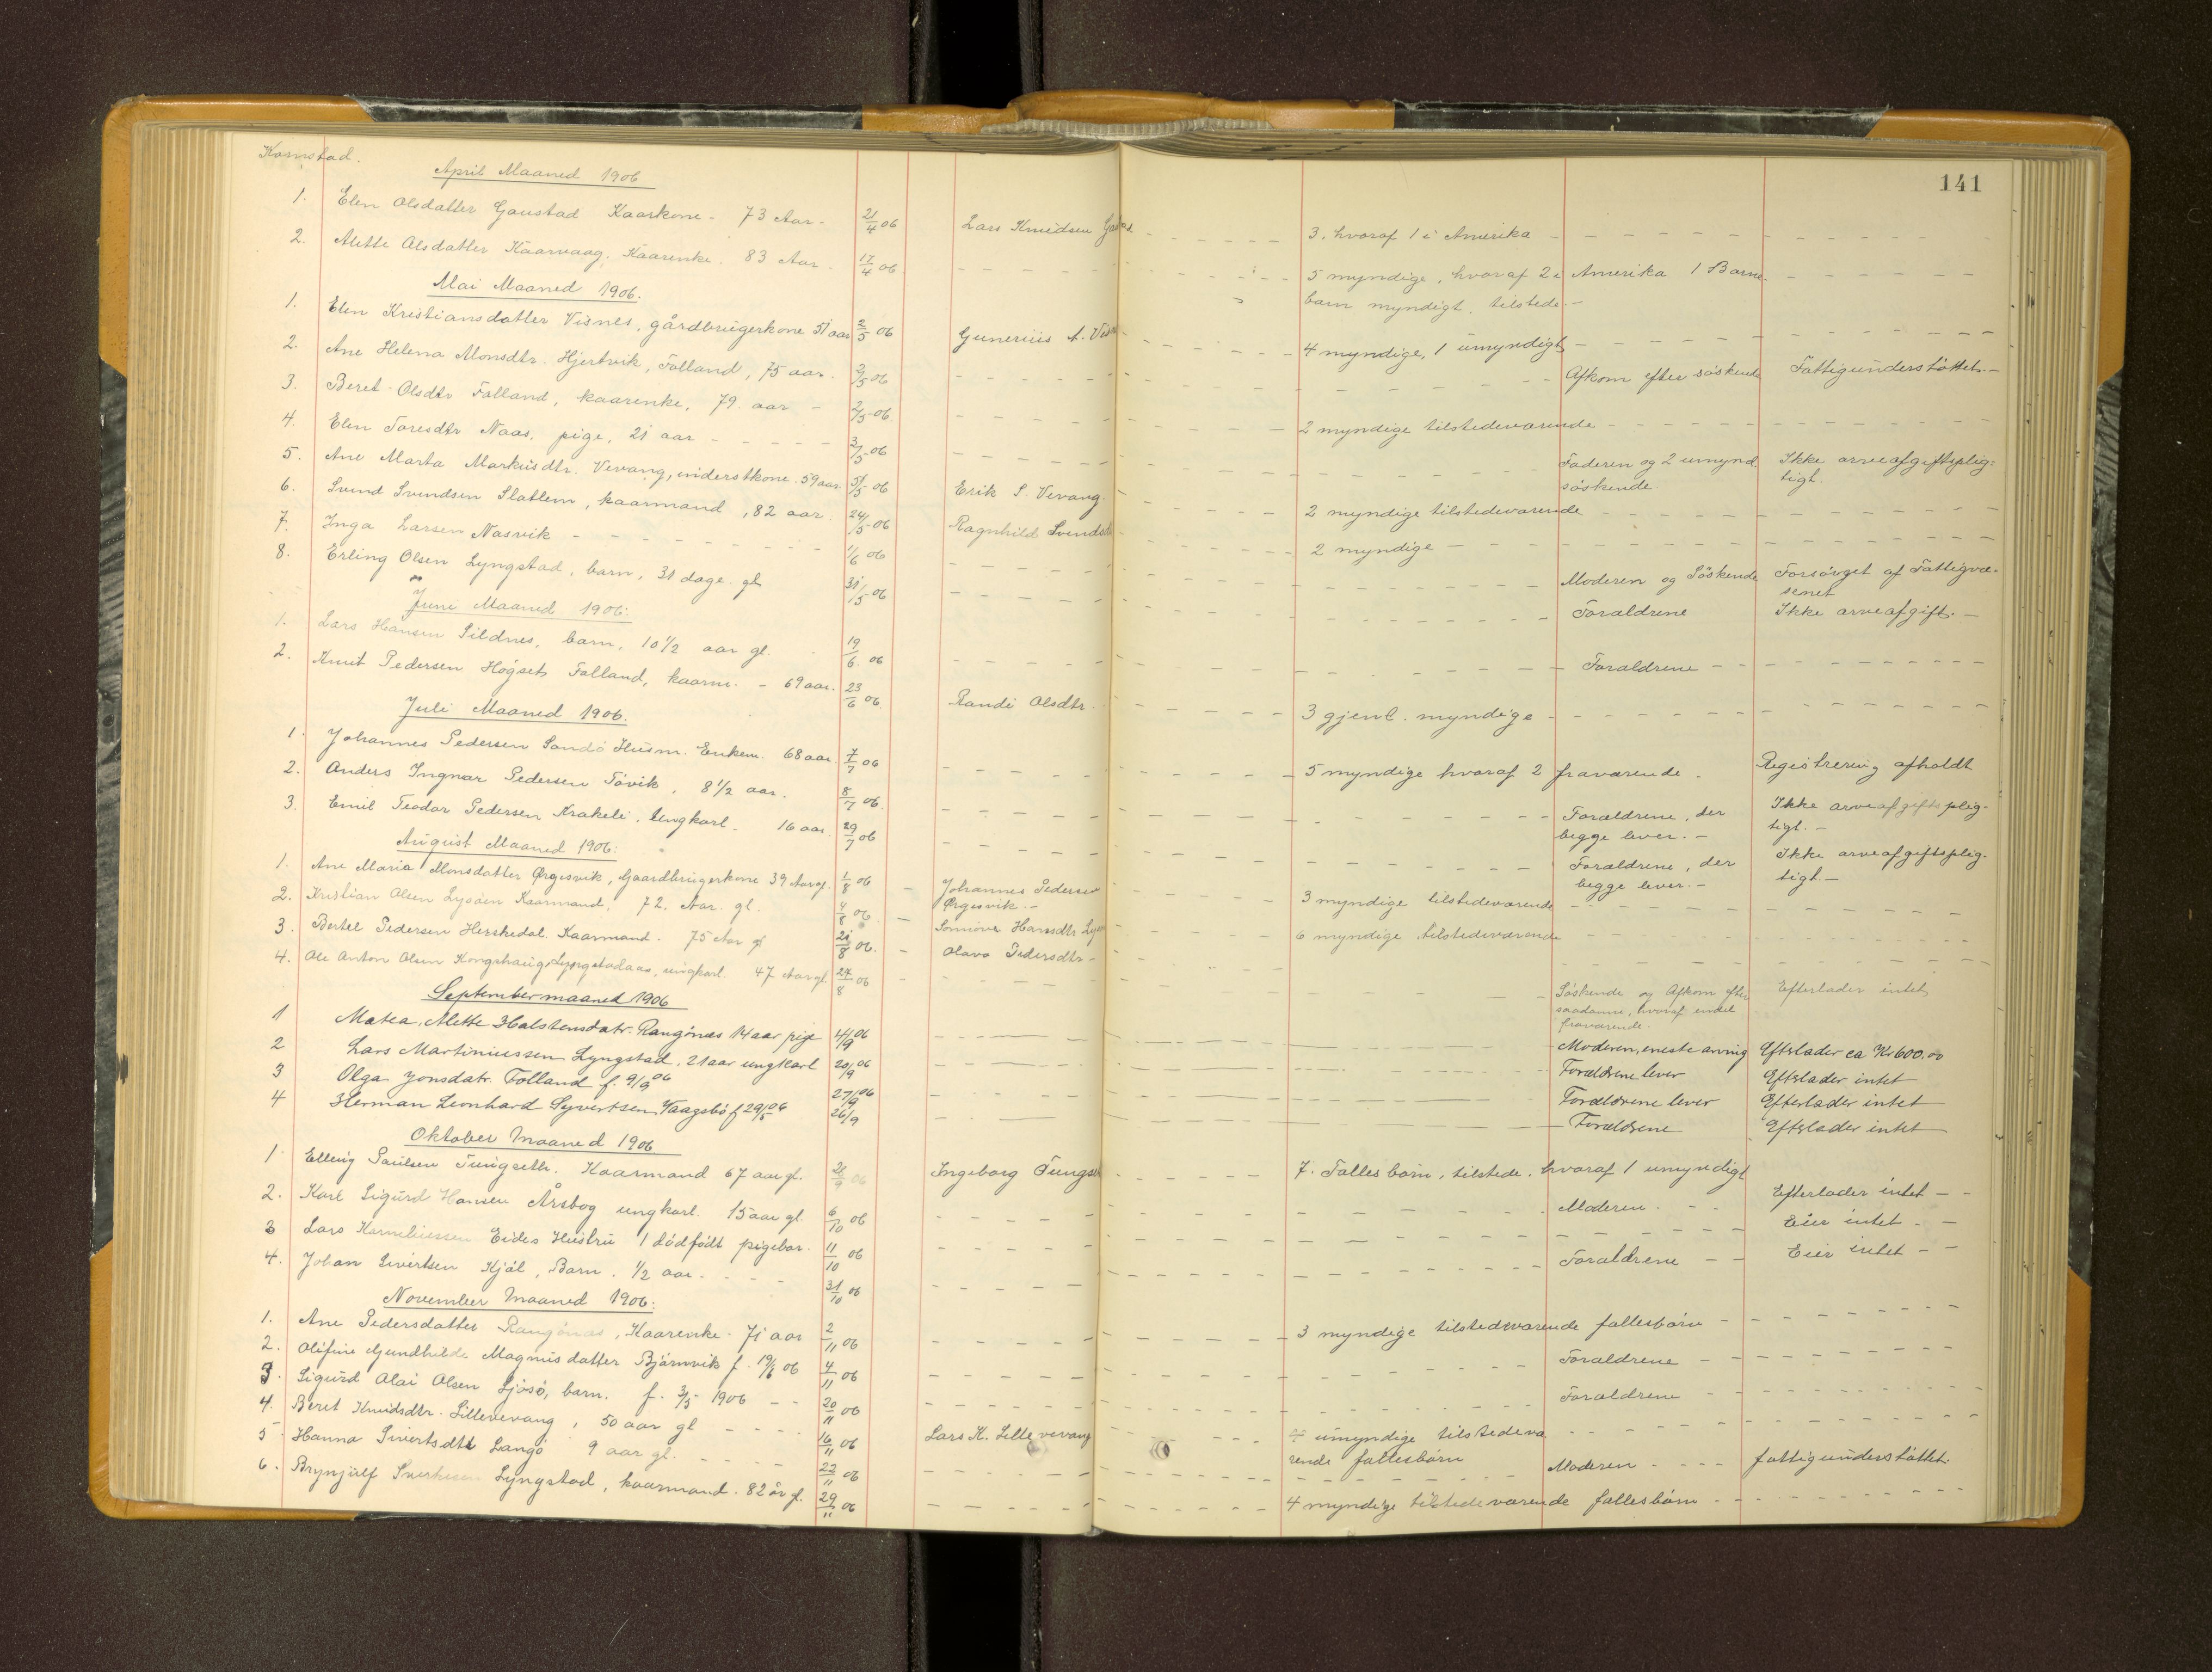 141
Kornstad.
April Maaned 1906
1. Elen Olsdatter Gaustad Kaarkone - 73 Aar - 21/4 06 Lars Knudsen 3. hvoraf 1 i Amerika
2. Alette Olsdatter Kaarvaag, Kaarenke. 83 Aar. 17/4 06 5 myndige, hvoraf 2 i Amerika 1 Barne-
barn myndigt. tilstede.-
Mai Maaned 1906.
1. Elen Kristiansdatter Visnes, gårdbrugerkone 51 aar 2/5 06 Guneriis A. 4 myndige, 1 umyndigt
2. Ane Helena Monsdtr. Hjertvik, Folland, 75 aar. 2/5 06 Afkom efter søskende Fattigunderstøttet.-
3. Beret Olsdtr Folland, kaarenke, 79 aar - 2/5 06 2 myndige tilstedeværende
4. Elen Toresdtr Naas, pige, 21 aar 3/5 06 Faderen og 2 umynd. Ikke arveafgiftsplig-
søskende tigt.
5. Ane Marta Markusdtr. Vevang, inderstkone. 59 aar. 31/5 06 Erik S. Vevang. 2 myndige tilstedeværende
6. Svend Svendsen Slatlem, kaarmand, 82 aar. 24/5 06 Ragnhild 2 myndige
7. Inga Larsen Nasvik 1/6 06 Moderen og Søskende Forsørget af Fattigvæ-
senet
8. Erling Olsen Lyngstad, barn, 31 dage gl 31/5 06 Forældrene Ikke arveafgift.-
Juni Maaned 1906.
1. Lars Hansen Sildnes, barn, 10 1/2 aar gl. 19/6 06 Forældrene
2. Knut Pedersen Høgset Folland, kaarm. - 69 aar. 23/6 06. Randi Olsdtr. 3 gjenl. myndige
Juli Maaned 1906.
1. Johannes Pedersen Sandø Husm. Enkem. 68 aar. 7/7 06 5 myndige hvoraf 2 fraværende. Registrering afholdt
2. Anders Ingmar Pedersen Tøvik, 8 1/2 aar. 8/7 06. Forældrene, der Ikke arveafgiftsplig-
begge lever.- tigt.-
3. Emil Teodor Pedersen Krakeli, Ungkarl. 16 aar. 29/7 06 Forældrene, der Ikke arveafgiftsplig-
begge lever.- tigt.-
August Maaned 1906.
1. Ane Maria Monsdatter Ørgesvik, Gaardbrugerkone 39 Aar gl. 1/8 06 - Johannes Pedersen 3 myndige tilstedeværende
Ørgesvik.-
2. Kristian Olsen Lysøen Kaarmand, 72. Aar. gl. 4/8 06. - Hansdtr 6 myndige tilstedeværende
3. Bertel Pedersen Herskedal. Kaarmand. 75 Aar gl 21/8 06. - Olava Pedersdtr-
4. Ole Anton Olsen Kongshaug, Lyngstadaas, ungkarl. 47 Aar gl. 24/8 06 Søskende og Afkom efter Efterlader intet
saadanne, hvoraf endel
fraværende.
Septembermaaned 1906
1 Matea Alette Halstensdatr. Rangønæs 14 aar pige 4/9 06 Moderen, eneste arving Efterlader ca Kr 600.00
2 Lars Martiniussen Lyngstad, 21 aar ungkarl 20/9 06 Forældrene lever Efterlader intet
3 Olga Jonsdatr. Folland f. 9/9 06 27/9 06 Forældrene lever Efterlader intet
4 Herman Leonhard Syvertsen Vaagsbø f 29/5 06 26/9 Forældrene Efterlader intet
Oktober Maaned 1906
1 Elling Paulsen Tungseth. Kaarmand 67 aar gl. 21/9 06 Ingeborg 7. Fælles børn, tilstede. hvoraf 1 umyndigt
2. Karl Sigurd Hansen Årsbog ungkarl. 15 aar gl. 6/10 06 Moderen. Efterlader intet -
3 Lars Korneliussen Eides Hustru 1 dødfødt pigebar. 11/10 06 Eier intet. -
4. Johan Sivertsen Kjøl, Barn. 1/2 aar. 31/10 06 Forældrene Eier intet -
November Maaned 1906.
1. Ane Pedersdatter Rangønæs, Kaarenke. 71 aar 2/11 06 3 myndige tilstedeværende fællesbørn
2. Olifine Gundhilde Magnusdatter Bjørnvik f. 19/6 06 4/11 06 Forældrene
3. Sigurd Olai Olsen Ljøsø, barn. f. 3/5 - 1906 20/11 06 Forældrene
4. Beret Knudsdtr. Lillevevang, 50 aar gl 16/11 06 Lars K. Lillevevang umyndige tilstedevæ
rende fællesbørn
5 Hanna Sivertsdtr Langø 9 aar gl. 22/11 06 Moderen fattigunderstøttet.
6. Brynjulf Lyngstad, kaarmand. 82 år gl. 29/11 06 4 myndige tilstedeværende fællesbørn